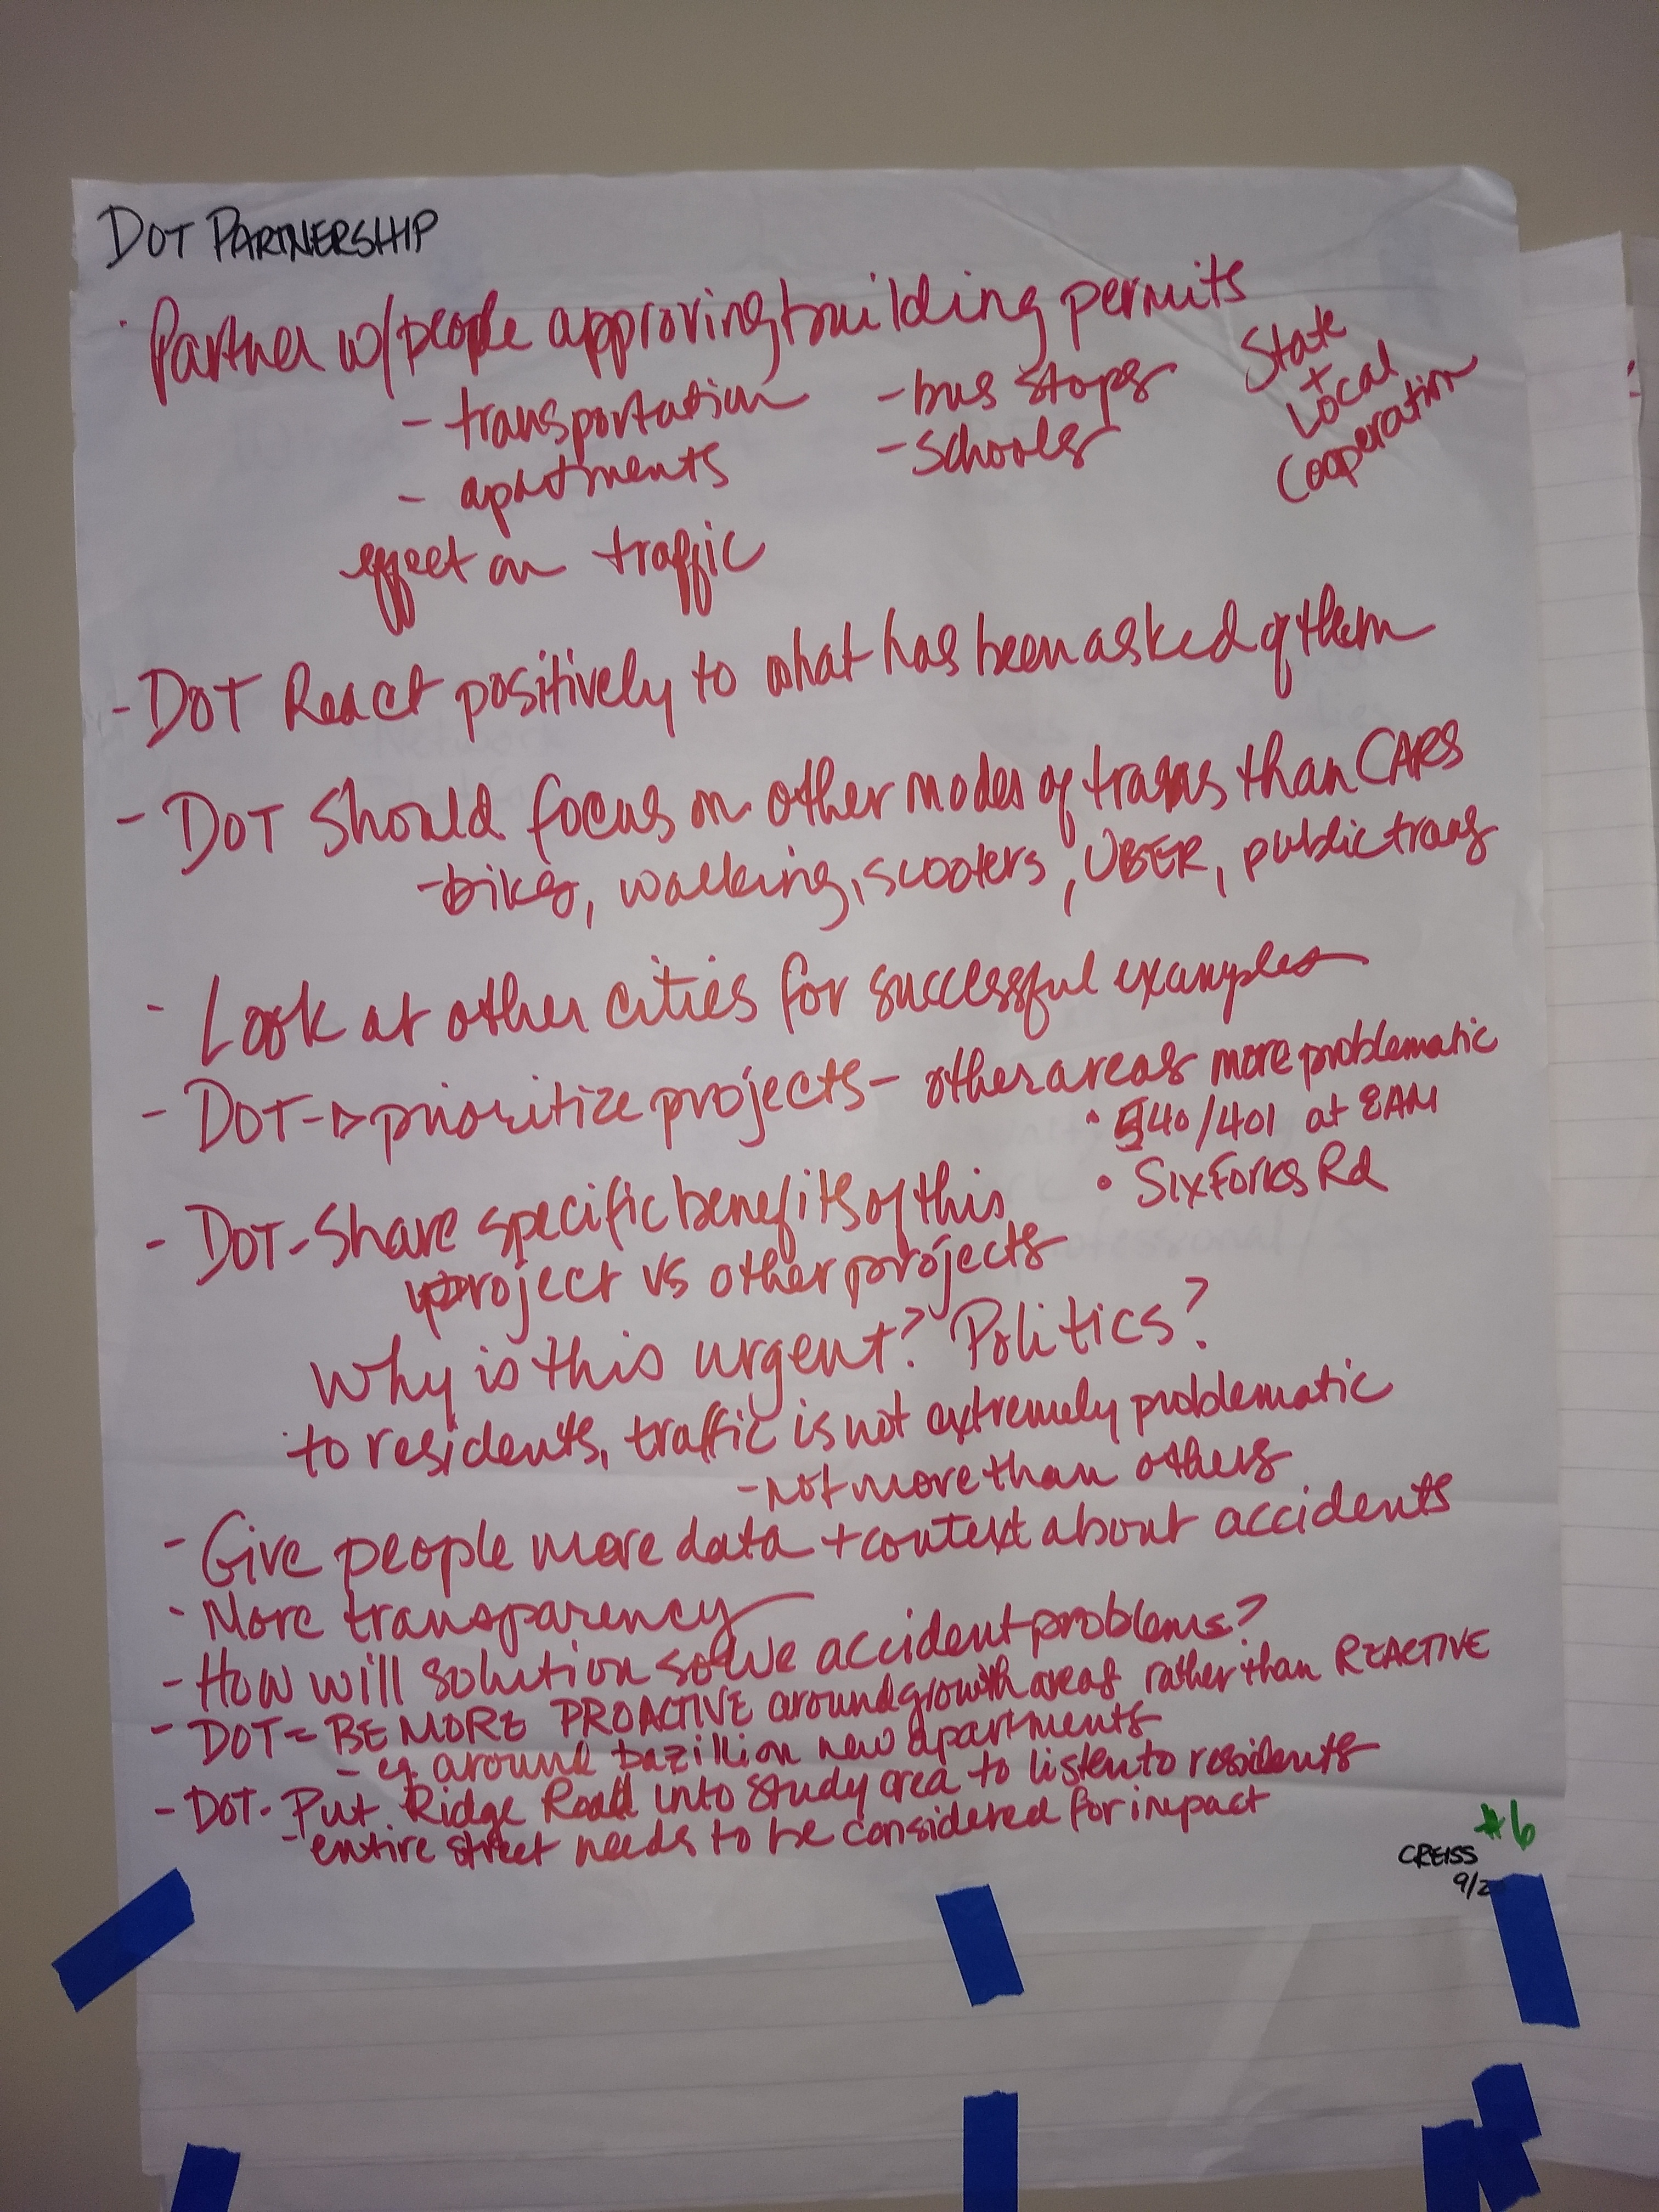 DOT PARTNERSHIP
· Partner w/people approving building permits
- transportation - bus stops
- apartments - schools
State
+
Local
Cooperation
effect on traffic
- DOT React positively to what has been asked of them
- DOT Should focus on other modes of trans than CARS
- bikes, walking, scooters, UBER, public trans
- Look at other cities for successful examples
- DOT -> prioritize projects - other areas more problematic
• 540/401 at 8AM
• Six Forks Rd
- DOT - Share specific benefits of this
project vs other projects
Why is this urgent? Politics?
to residents, traffic is not extremely problematic
- not more than others
- Give people more data + context about accidents
- More transparency
- How will solution solve accident problems?
- DOT = BE MORE PROACTIVE around growth areas rather than REACTIVE
- eg. around bazillion new apartments
- DOT - Put Ridge Road into study area to listen to residents
- entire street needs to be considered for impact
#6
CREISS